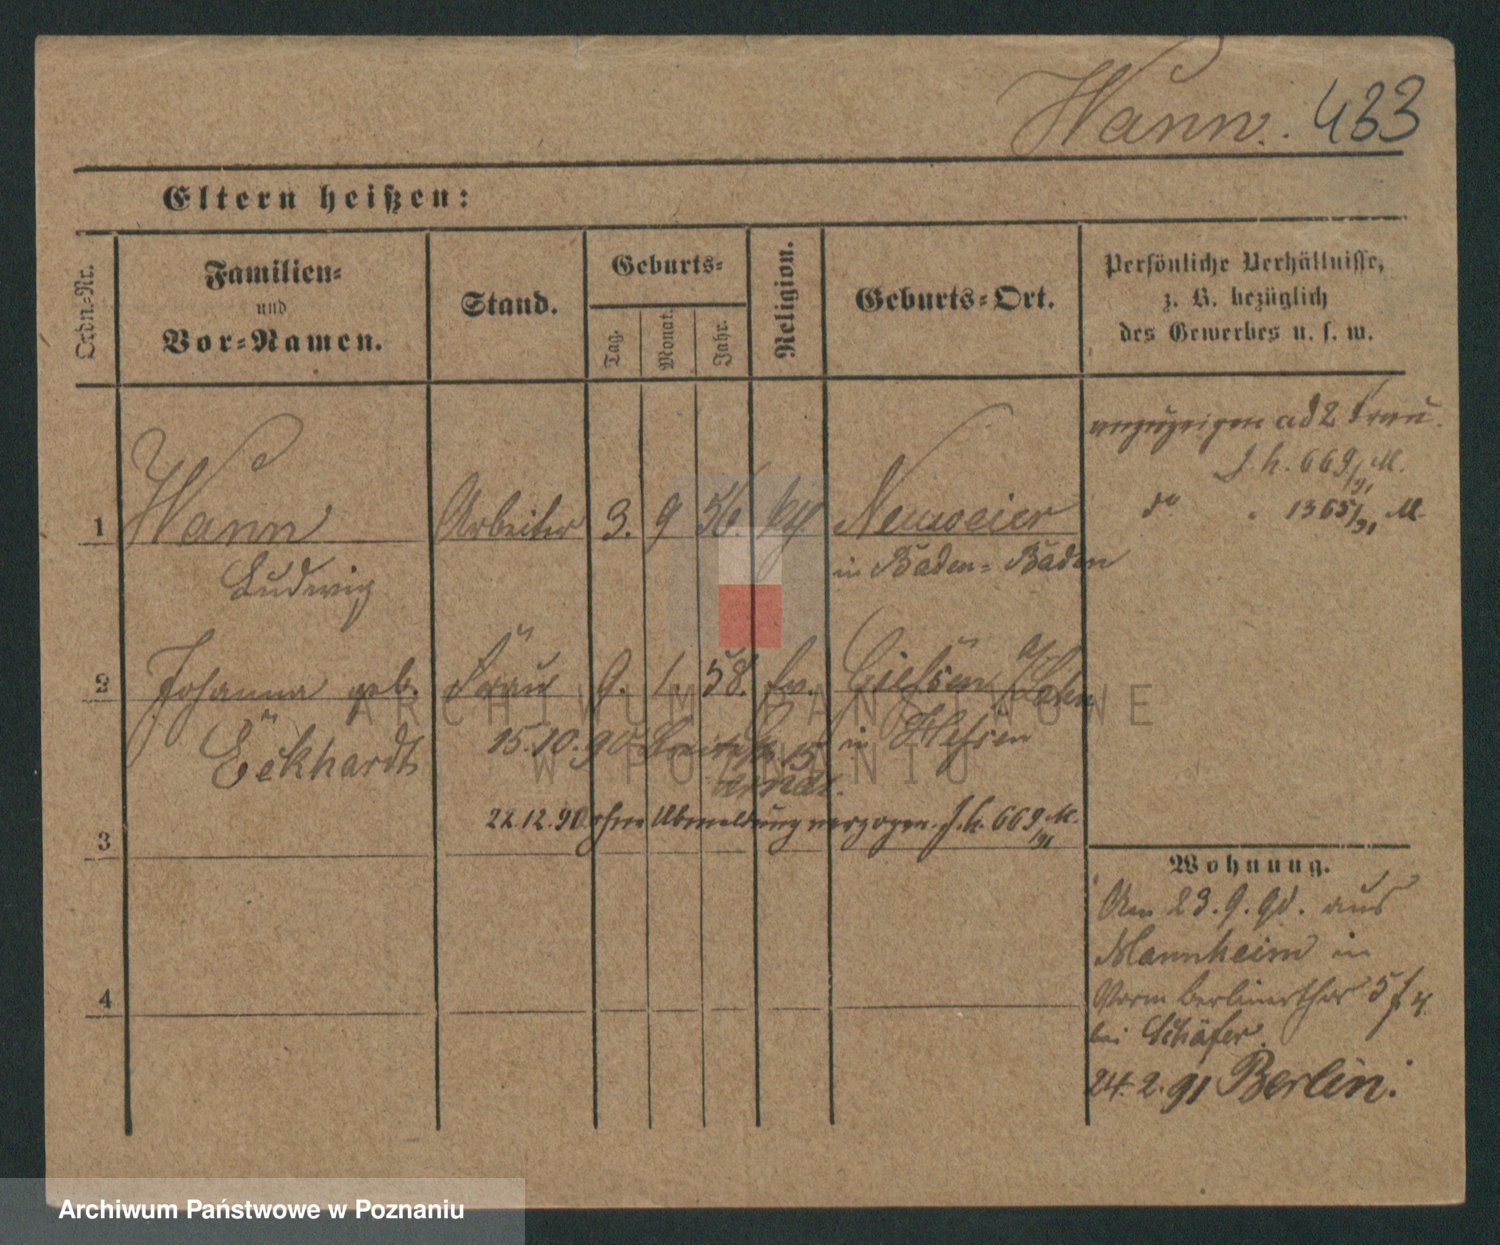 Wann. 433
Eltern heißen:
Ordn.-Nr.
Familien-
und
Vor-Namen.
Stand.
Geburts-
Tag.
Monat.
Jahr.
Religion.
Geburts-Ort.
Persönliche Verhältnisse,
z. B. bezüglich
des Gewerbes u. s. w.
anzuzeigen ad 2 Frau.
J. h. 669/91 M.
do " 1365/91 M.
1 Wann Arbeiter 3. 9 56. Neuweier
Ludwig in Baden-Baden
2 Johanna geb. Frau 9. 1. 58. ev. Gießen a/Lahn
Eckhardt 15.10.90 in Hessen
22.12.90 ohne Abmeldung verzogen. J. h. 669/91 M.
3
4
Wohnung.
Am 23.9.90. aus
Mannheim in
Vorm Berlinerthor 5
bei Schäfer.
24.2.91 Berlin.
ARCHIWUM PAŃSTWOWE
W POZNANIU
Archiwum Państwowe w Poznaniu